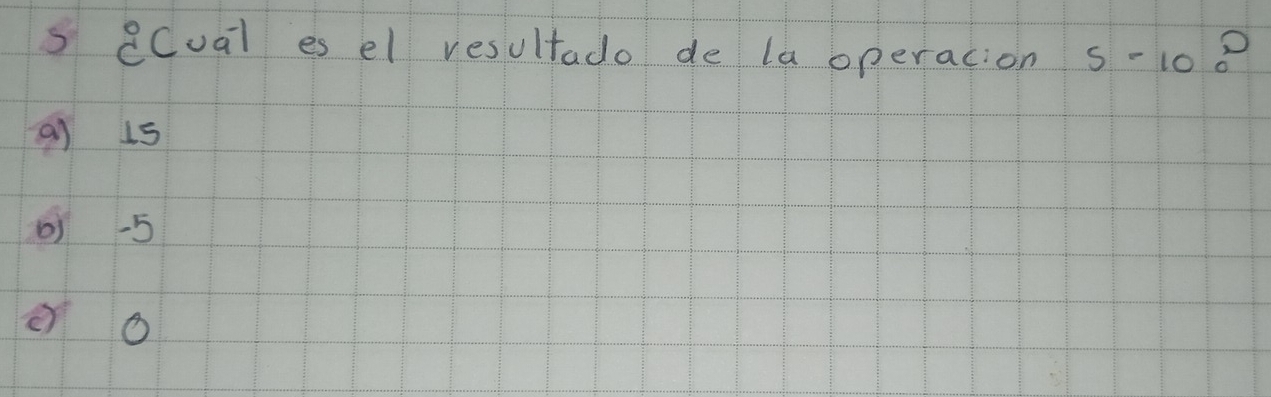 5 ¿Cuál es el resultado de la operacion 5 - 10?
a) 15
b) -5
c) 0